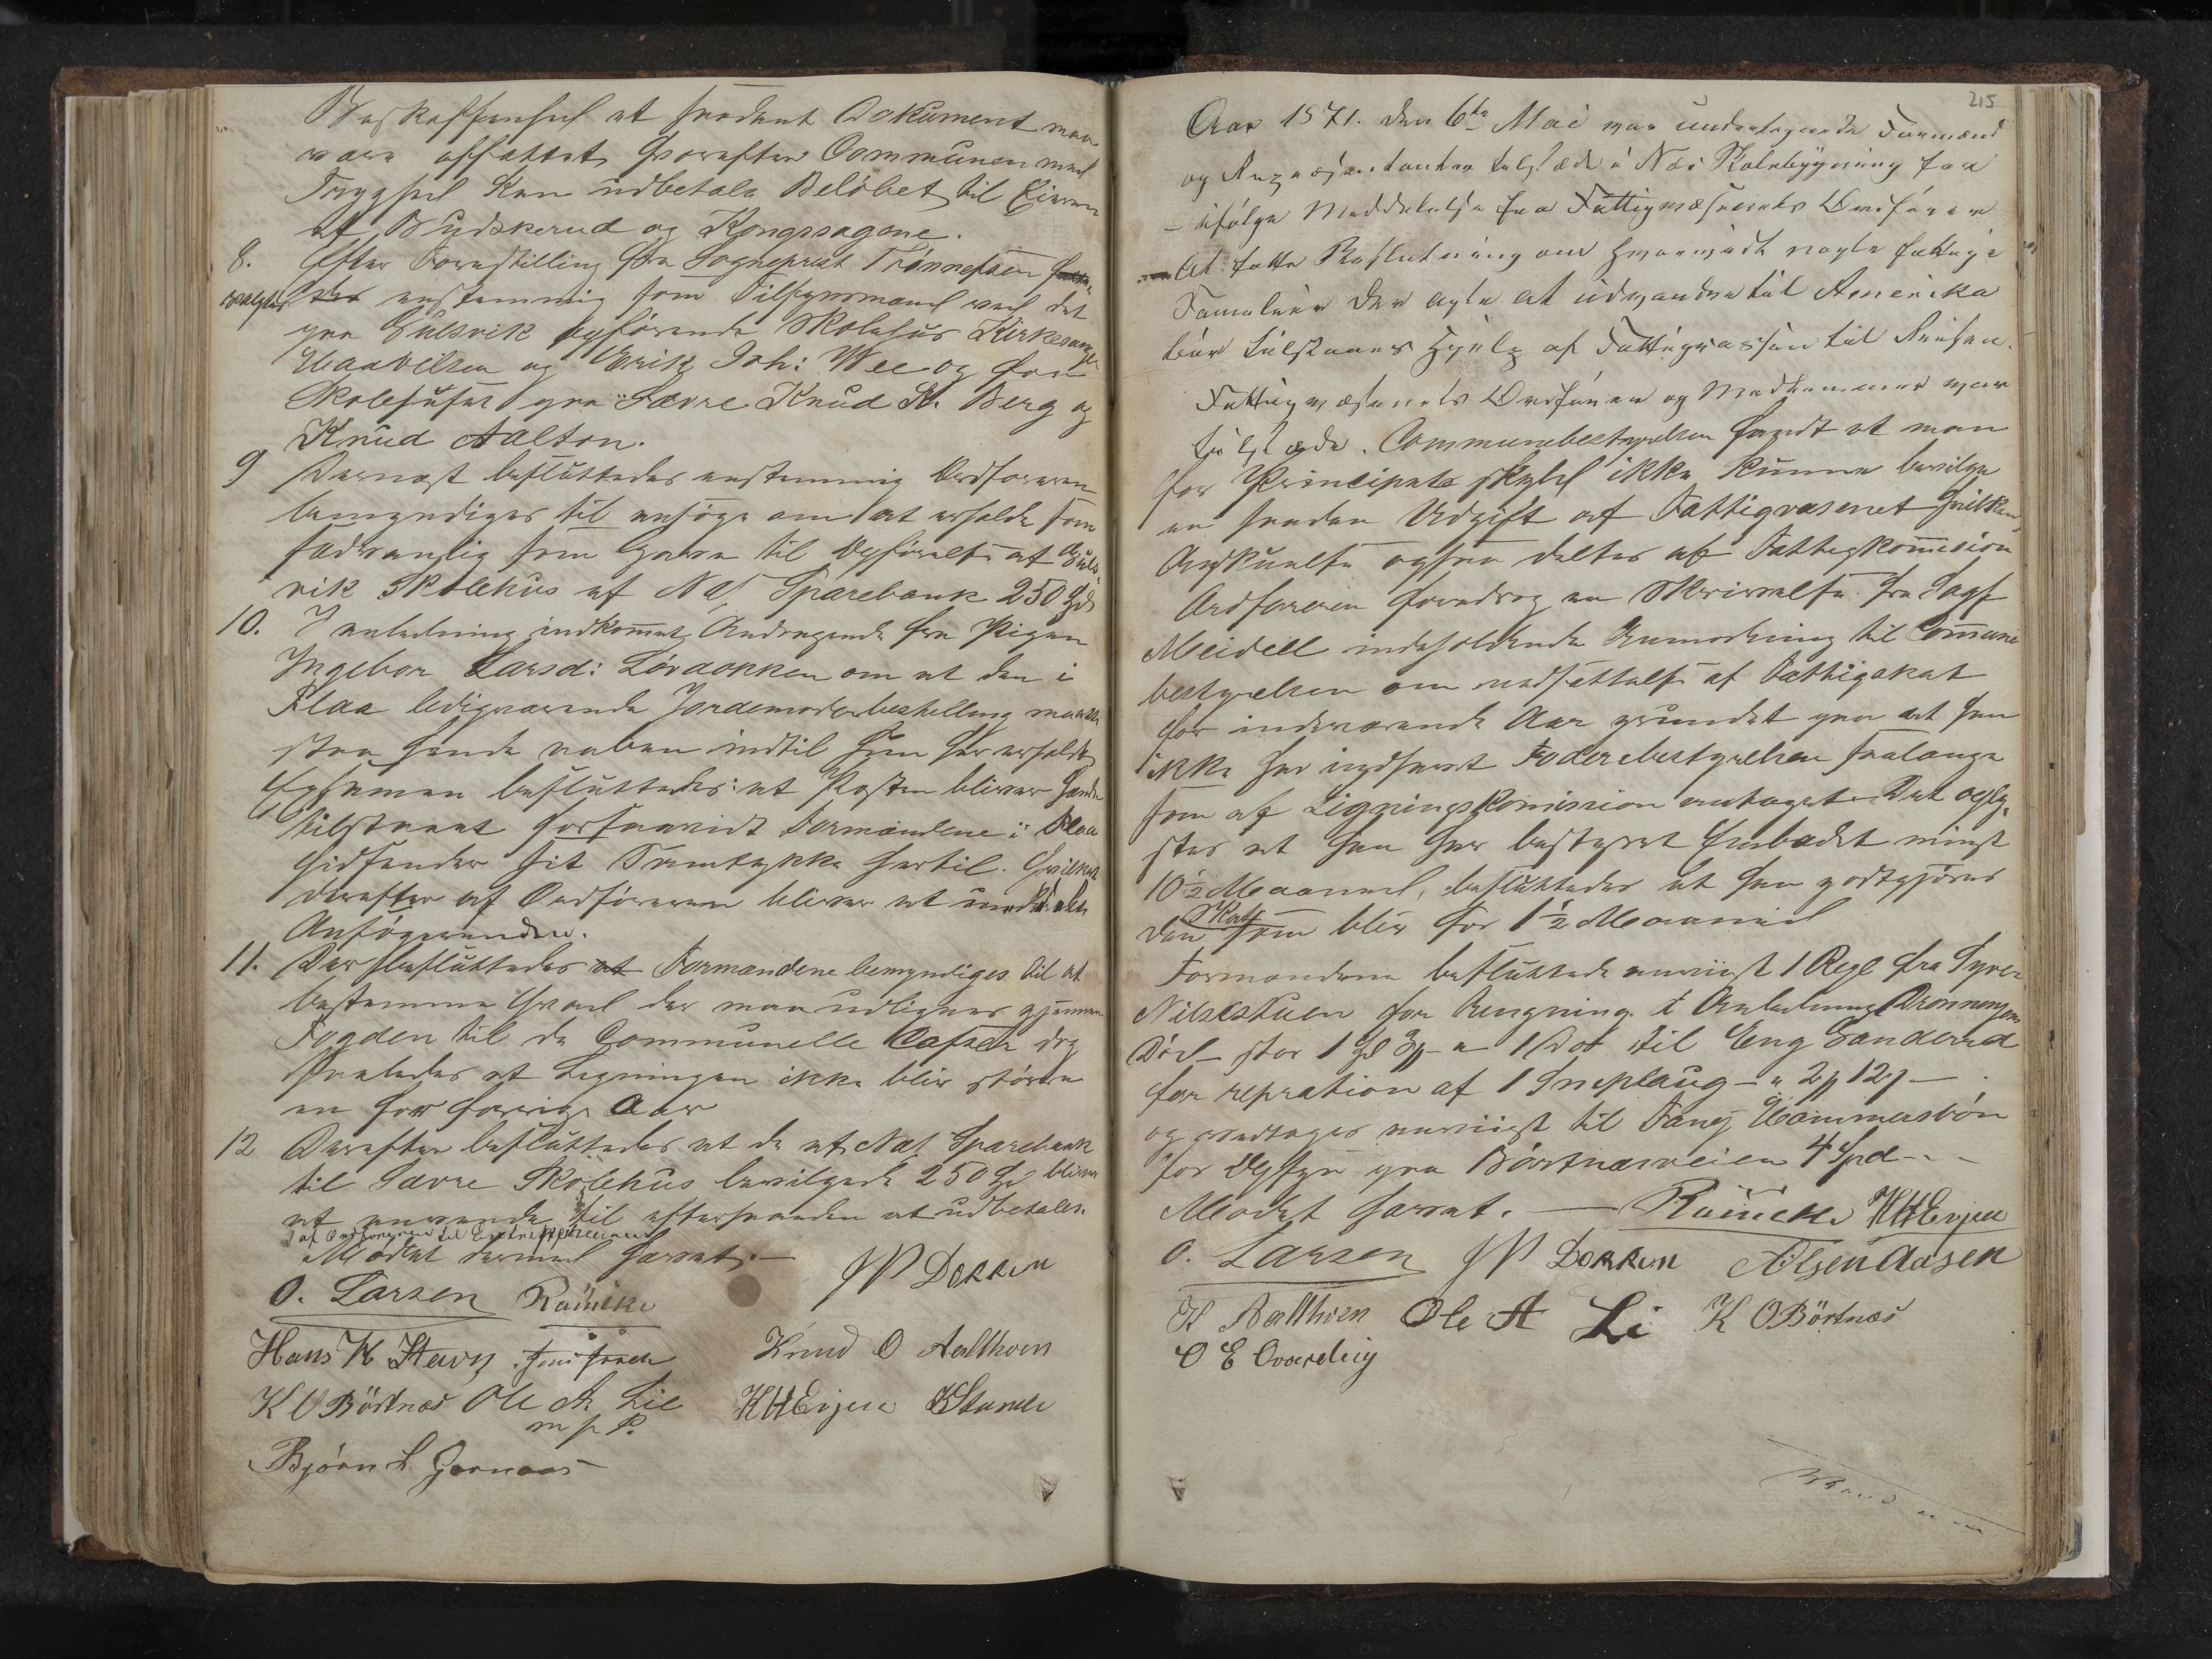 Beskaffenhed at saadant Dokument maa
være affattet hvorefter Communen med
Tryghed kan udbetale Beløbet til Eieren
af Budskerud og Kongssagene.
8. Efter Forestilling fra Sogneprest Tønnesen
valgtes enstemmig som Tilsynsmænd ved det
paa Gulsvik opførende Skolehus Kirkesanger
og Erik Joh: Wee og for
Skolehuset paa Sævre Knud K. Berg og
Knud Aalton.
9 Dernæst besluttedes enstemmig Ordføreren
bemyndiges til ansøge om at erholde som
sædvanlig som Gave til Opførelse af Guls-
vik Skolehus af Næs Sparebank 250 Spd
10. I anledning indkommet Andragende fra Pigen
Ingebor Larsd: Løvaokken om at den i
Flaa ledigværende Jordemoderbestilling maatte
staa hende aaben indtil hun har erholdt
Examen besluttedes: at Posten bliver hende
tilstaaet forsaavidt Formændene i Flaa
hidsender sit Samtykke hertil. Hvilket
derefter af Ordføreren bliver at meddele
Ansøgerinden.
11. Der besluttedes at Formændene bemyndiges til at
bestemme hvad der maa udlignes gjennem
Fogden til de Communelle Casser dog
saaledes at Ligningen ikke blir større
en for forrige Aar
12 Derefter besluttedes at de af Næs Sparebank
til Sævre Skolehus bevilgede 250 Spd bliver
at anvende til efterhaanden at udbetales.
af Ordføreren til
Mødtet dermed hævet. —
O. Larsen Reincke J P Dokken
Hans K Stavn Knud O Aalthoen
K O Börtnæs Ole A. Lie K H Evjen
m p P.
Bjørn L Gornaas
215
Aar 1871. den 6te Mai var undertegnede Formænd
og Repræsentanter tilstæde i Næs Skolebygning for
ifølge Meddelelse fra Fattigvæsenets Ordfører
At fatte Beslutning om hvorvidt nogle fattige
Familier der agte at udvandre til Amerika
bør tilstaaes Hjelp af Fattigcassen til Reisen.
Fattigvæsenets Ordfører og Medlemmer var
tilstæde. Communebestyrelsen fandt at man
for Principets skyld ikke kunne bevilge
en saadan Udgift af Fattigvæsenet hvilken
Anskuelse ogsaa deltes af Fattigkommision
Ordføreren foredrog en Skrivelse fra Sagf
Meidell indeholdende Anmodning til Commune
bestyrelsen om nedsættelse af Fattigskat
for indeværende Aar grundet paa at han
ikke har indehavt Foderebestyrelsen saalænge
som af Ligningskomission antaget. Det oply-
stes at han har bestyret Embedet minst
10½ Maaned, besluttedes at han godtgjøres
den Skat som blir for 1½ Maaned
Formændene besluttede anviist 1 Regl fra Syver
Nilsestuen for Ringning i Anledning Dronningens
Død stor 1 Spd 3 – 1 Do til Eng Sanderud
for repration af 1 Sneplaug – 2 12 –
og modtages anviist til Tang Hammersbøn
for Opsyn paa Børtnesveien 4 Spd –
Mødet hævet. — Reincke K H Evjen
O. Larsen J P Dokken A Olsen Aasen
K Aalthoen Ole A Li K O Börtnæs
O E